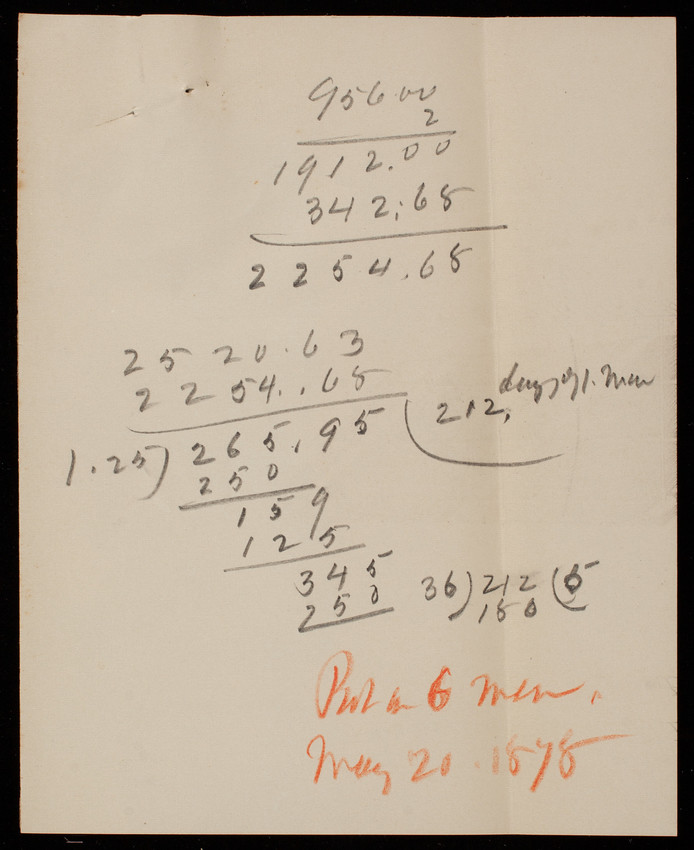 956 00
2
1912.00
342.68
2254.68
2520.63
2254.68
1.25) 265.95 ( 212, days of 1. man
250
159
125
345
250
36) 212 (5
180
Put on 6 men.
May 20. 1878